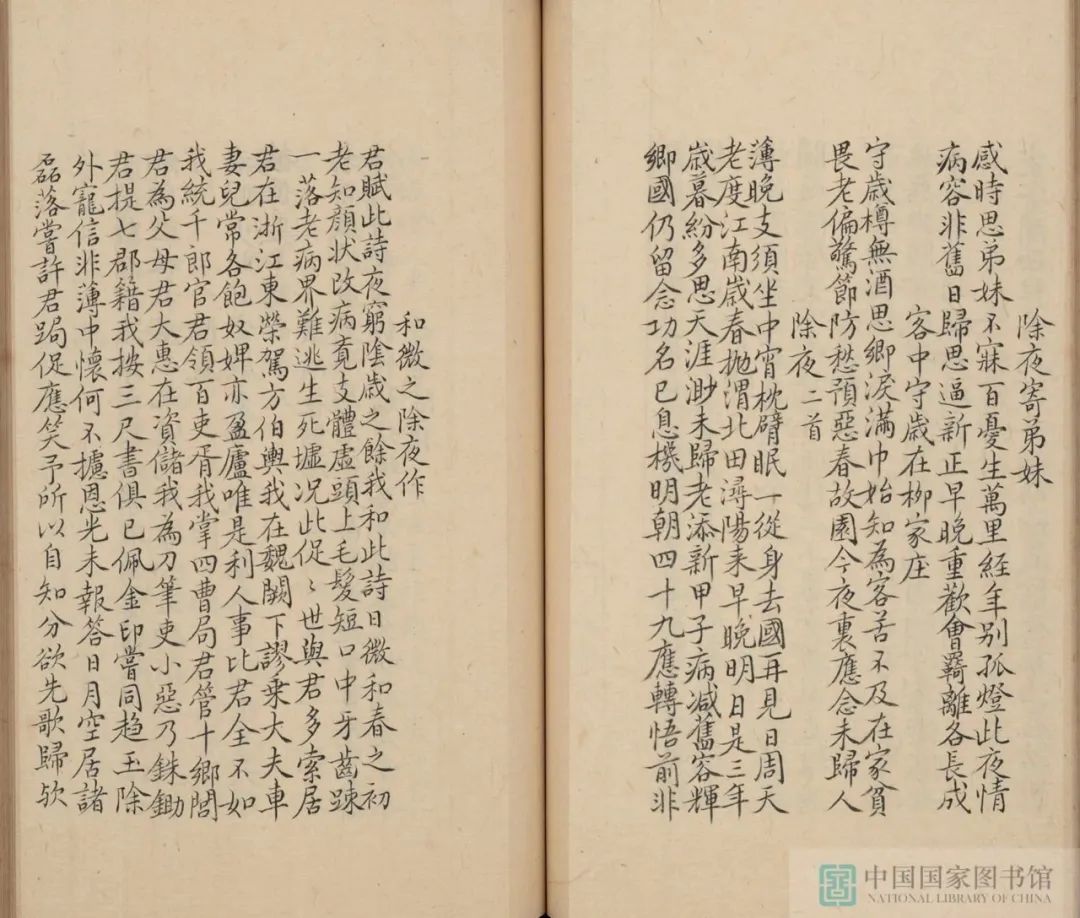 除夜寄弟妹
感時思弟妹不寐百憂生萬里經年别孤燈此夜情
病容非舊日歸思逼新正早晚重歡會羇離各長成
客中守歲在柳家庄
守歳樽無酒思鄉淚滿巾始知為客苦不及在家貧
畏老偏驚節防愁預惡春故園今夜裏應念未歸人
除夜二首
薄晚支須坐中宵枕臂眠一從身去國再見日周天
老度江南歳春抛渭北田潯陽来早晚明日是三年
歳暮紛多思天涯渺未歸老添新甲子病减舊容輝
鄉國仍留念功名已息機明朝四十九應轉悟前非
和微之除夜作
君賦此詩夜窮陰歳之餘我和此詩日微和春之初
老知顔状改病覔支體虛頭上毛髮短口中牙齒踈
一落老病界難逃生死墟况此促〻世與君多索居
君在浙江東榮駕方伯輿我在魏闕下謬乗大夫車
妻兒常各飽奴婢亦盈廬唯是利人事比君全不如
我統千郎官君領百吏胥我掌四曹局君管十鄉閭
君為父母君大惠在資儲我為刀筆吏小惡乃銖鋤
君提七郡籍我按三尺書俱已佩金印嘗同趋玉除
外寵信非薄中懐何不攄恩光未報答日月空居諸
磊落嘗許君跼促應笑予所以自知分欲先歌歸欤
中国国家图书馆
NATIONAL LIBRARY OF CHINA